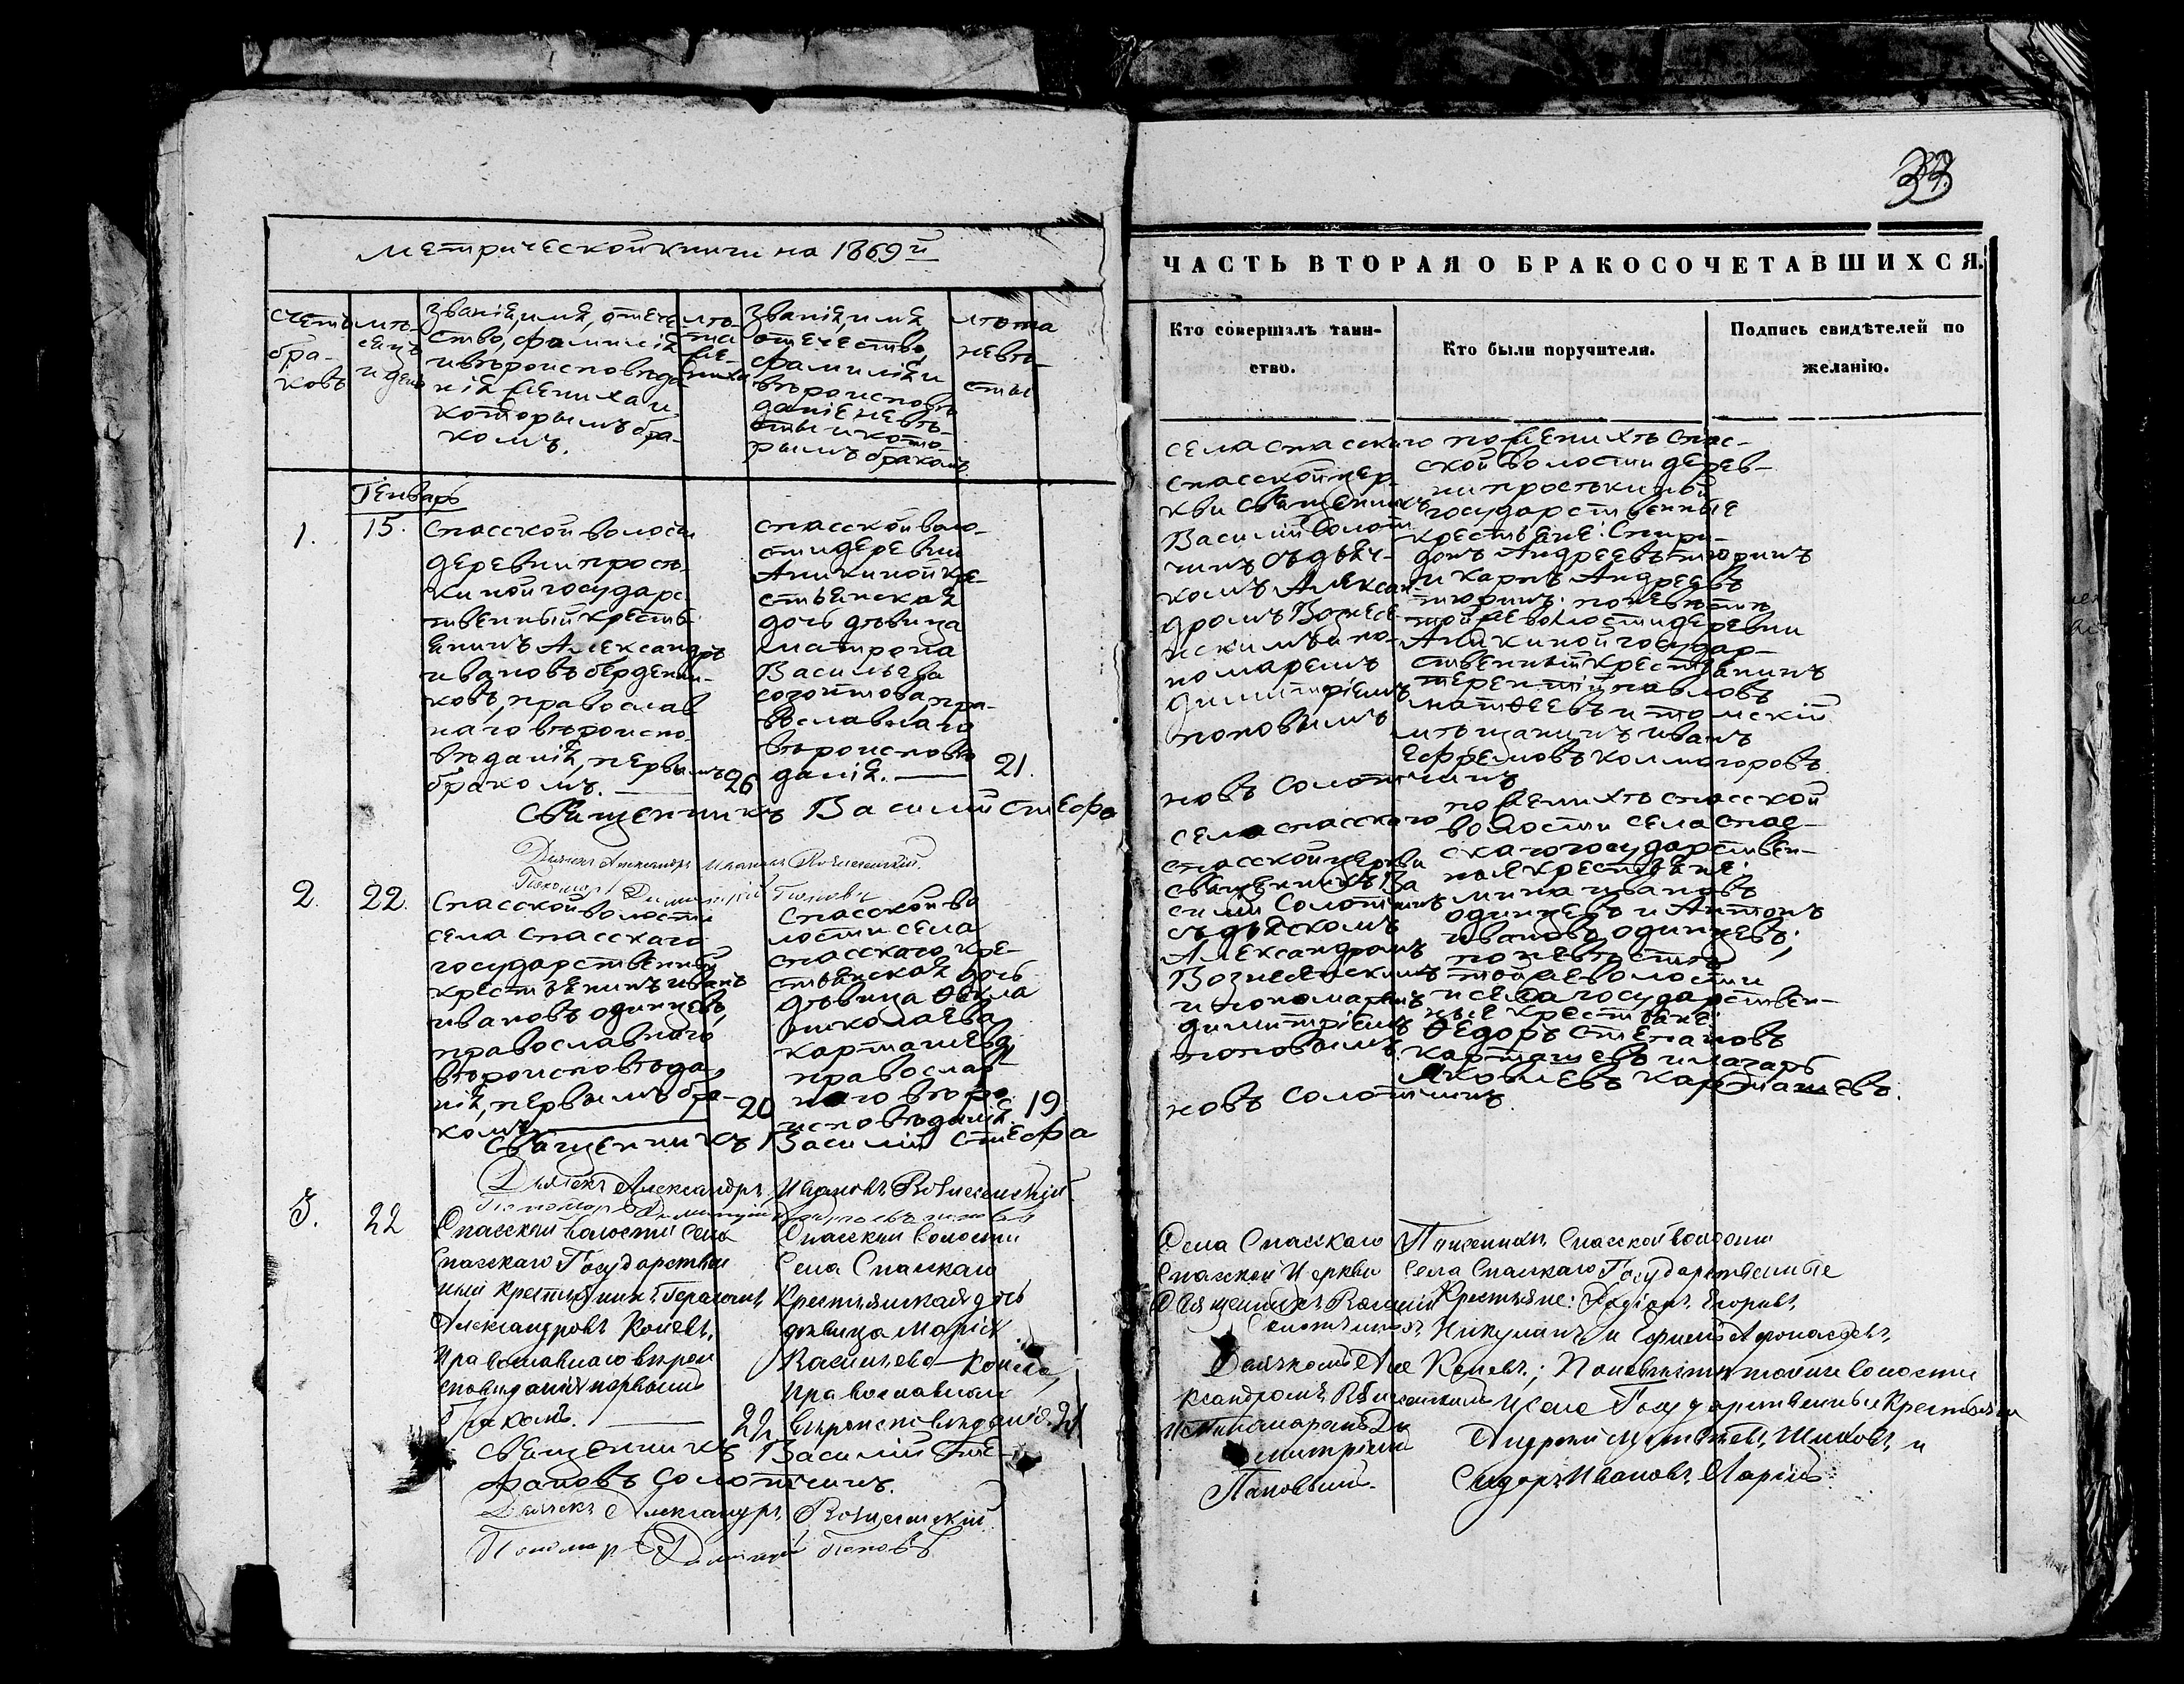 33
метрической книги на 1869й
ЧАСТЬ ВТОРАЯ О БРАКОСОЧЕТАВШИХСЯ.
счетъ
бра-
ковъ
мѣ-
сецъ
и день
званія, имя, отече
ство, фамилія
и вѣроисповѣда
нія жениха и
которымъ бра-
комъ.
лѣ-
та
же-
ниха
званія, имя
отечество,
фамилія и
вѣроисповѣ
даніе невѣ-
сты и кото
рымъ бракомъ
лѣта
невѣ-
сты
Кто совершалъ таин-
ство.
Кто были поручители.
Подпись свидѣтелей по
желанію.
Генварь
1.
15.
спасской волости
деревни прость
киной государс
твенный кресть
янинъ Александръ
ивановъ берденни-
ковъ, православ
наго вѣроиспо
вѣданія, первымъ
бракомъ.
26
спасской воло-
сти деревни
Аникиной кре-
стьянская
дочь дѣвица
матрона
Васильева
пра-
вославнаго
вѣроисповѣ
данія.
21.
села спасскаго
спасской цер-
кви священникъ
Василій Солот
чинъ съ дьяч-
комъ Алексан-
дромъ Вознесе
нскимъ и по-
номаремъ
димитріемъ
поповымъ
по женихѣ спас-
ской волости дерев-
ни простькиной
государственные
крестьяне: Спири-
донъ Андреевъ тюринъ
и карпъ Андреевъ
тюринъ; по невѣстѣ
той же волости деревни
Аникиной государ-
ственный крестьянинъ
терентій павловъ
матѳеевъ и томскій
мѣщанинъ иванъ
Ефремовъ колмогоровъ
священникъ Василій Стефа
новъ Солотчинъ
Дьячекъ Александръ Ивановъ Вознесенскій.
Пономарь Димитрій Поповъ
2.
22.
Спасской волости
села спасскаго
государственный
крестьянинъ иванъ
ивановъ одинцевъ,
православнаго
вѣроисповѣда,
нія, первымъ бра-
комъ
20
Спасской во
лости села
спасскаго кре-
стьянская дочь
дѣвица Ѳекла
николаева
карташева
православ
наго вѣро
исповѣданія.
19.
села спасскаго
спасской церкви
священникъ Ва
силій Солотчинъ
съ дьячкомъ
Александромъ
Вознесенскимъ
и пономаремъ
димитріемъ
поповымъ
по женихѣ спасской
волости села спас-
скаго государствен-
ные крестьяне:
мина ивановъ
одинцевъ и Антонъ
ивановъ одинцевъ;
по невѣстѣ
той же волости
и села государствен-
ные крестьяне:
Ѳедоръ Степановъ
карташевъ и лазарь
Яковлевъ карташевъ.
священникъ Василій Стефа
новъ Солотчинъ.
Дьячекъ Александръ Ивановъ Вознесенскій
Пономарь Димитрій поповъ
3.
22
Спасской волости села
Спасскаго Государствен
ный Крестьянинъ Герасимъ
Александровъ Коневъ,
Православнаго вѣрои
сповѣданія первымъ
бракомъ.
22
Спасской волости
Села Спасскаго
Крестьянская дочь
дѣвица Марія
Васильева
православнаго
вѣроисповѣданія.
21.
Села Спасскаго
Спасской Церкви
Священникъ Василій
Солотчинъ
Дьячкомъ Але
ксандромъ Вознесенскимъ
и Пономаремъ Ди
митріемъ
Поповымъ.
По женихѣ Спасской волости
Села Спасскаго Государственные
Крестьяне: Родіонъ Егоровъ
и Афонасьевъ
Коневъ; По невѣстѣ той же волости
и села Государственные Крестьяне
Шиховъ и
Сидоръ Ивановъ Ларинъ.
Священникъ Василій Сте-
фановъ Солотчинъ.
Дьячекъ Александръ Вознесенскій
Пономарь Димитрій Поповъ